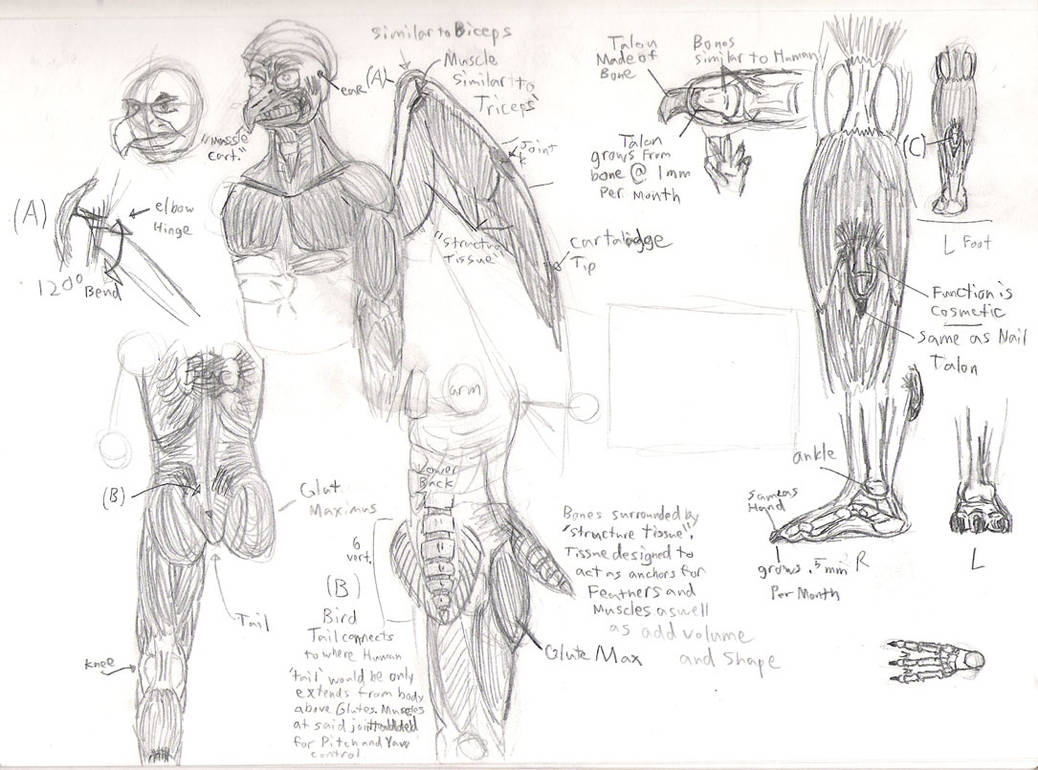 Similar to Biceps
(A)
Muscle
Similar to
Triceps
ear
"Mussle
Cart."
Joint
"Structure
Tissue"
Cartalidge
Tip
(A)
elbow
Hinge
120° Bend
Talon
Made of
Bone
Bones
Similar to Human
Talon
grows from
bone @ 1mm
Per Month
(C)
L Foot
Function is
Cosmetic
Same as Nail
Talon
ankle
Same as
Hand
grows .5mm
Per Month
R
L
arm
Lower
Back
(B)
Glut
Maximus
Tail
Knee
6
vort.
(B)
Bird
Tail connects
to where Human
'tail' would be only
extends from body
above Glutes. Muscles
at said joint added
for Pitch and Yaw
control
Bones surrounded by
"structure tissue".
Tissue designed to
act as anchors for
Feathers and
Muscles as well
as add volume
and shape
Glute Max